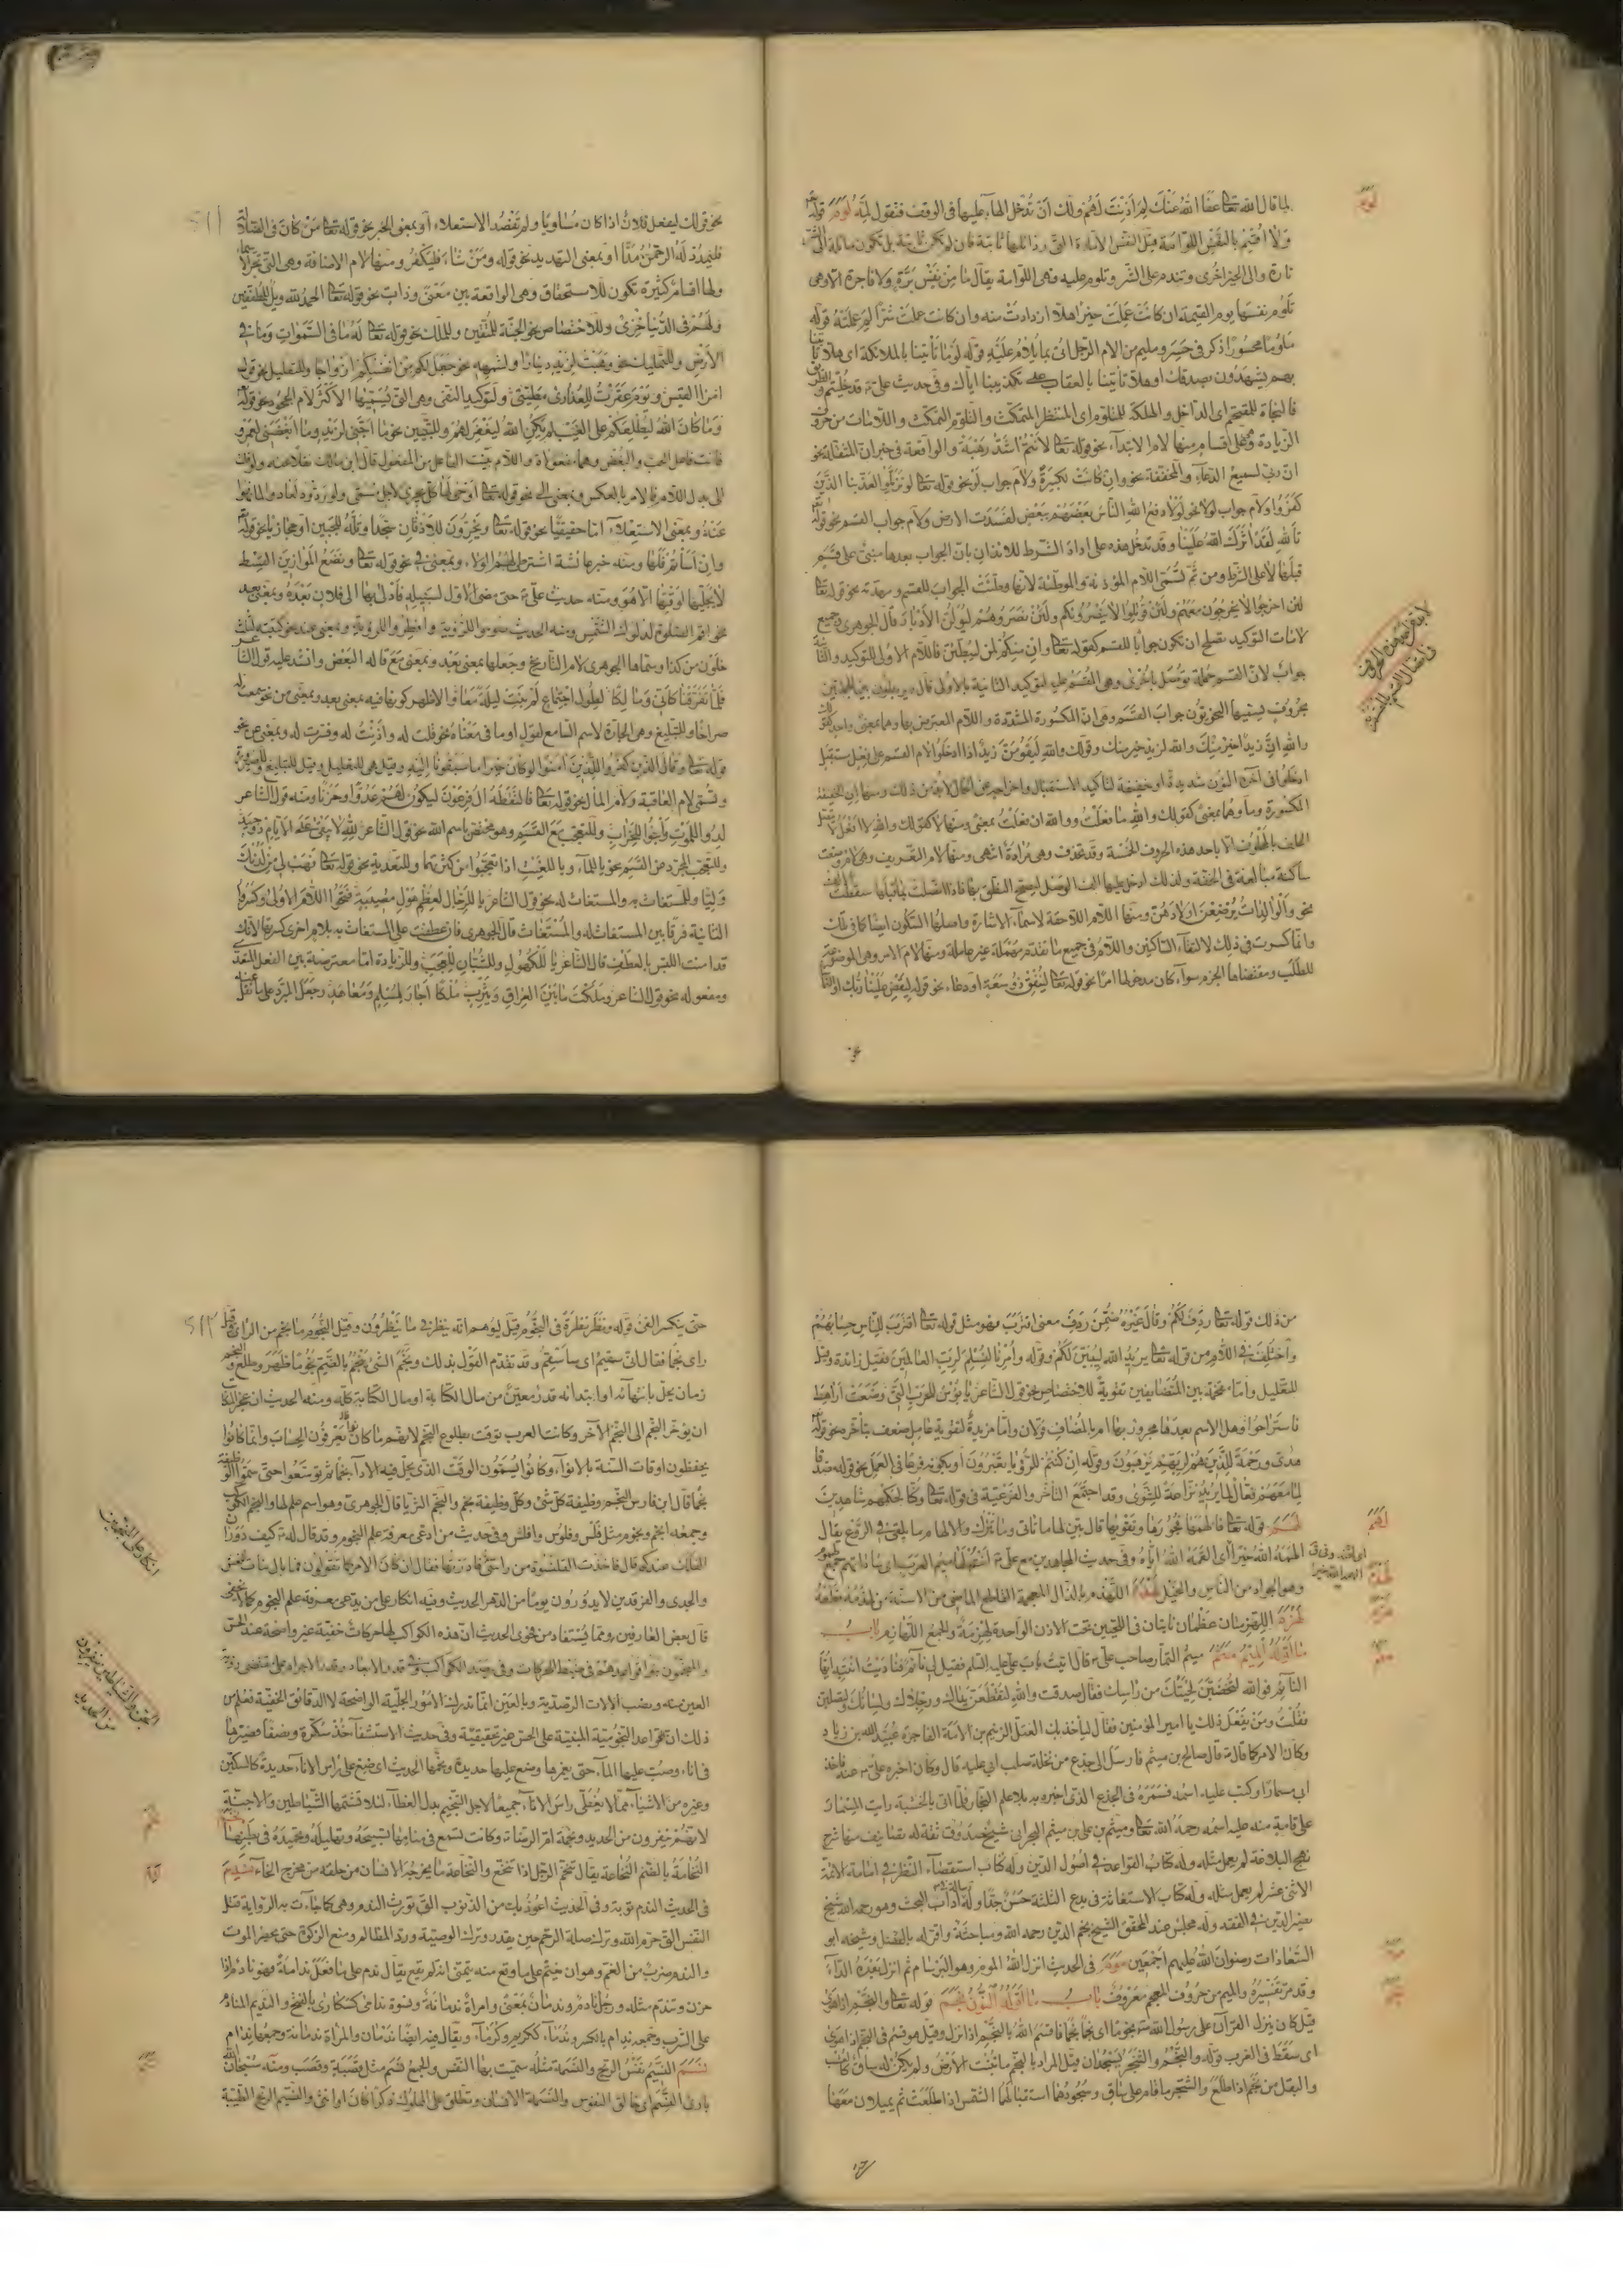 لما قال الله تعا عفا الله عنك لم اذنت لهم ولك ان تدخل الهاء عليها في الوقف فتقول لمه لوم قوله
ولا اقسم بالنفس اللوامة قيل النفس الامارة التي رذائلها ثابتة فان لم تكن ثابتة بل تكون مائلة الى الشر
تارة والى الخير اخرى وتندم على الشر وتلوم عليه وهي اللوامة يقال ما من نفس برة ولا فاجرة الا وهي
تلوم نفسها يوم القيمة ان كانت عملت خيرا هلا ازدادت منه وان كانت عملت شرا لم عملته قوله
ملوما محسورا ذكر في حسر ومليم من الام الرجل اتى بما يلام عليه قوله لو ما تأتينا بالملائكة اي هلا تأتينا
بهم يشهدون بصدقك او هلا تأتينا بالعقاب على تكذيبنا اياك وفي حديث علي
فالنجاة للمقتحم اي الداخل والهلكة للمتلوم اي المنتظر المتمكث والتلوم التمكث واللامات من حروف
الزيادة وهي اقسام منها لام الابتداء نحو قوله تعا لانتم اشد رهبة والواقعة في خبر ان المثقلة نحو
ان ربي لسميع الدعاء والمخففة نحو وان كانت لكبيرة ولام جواب لو نحو قوله تعا لو تزيلوا لعذبنا الذين
كفروا ولام جواب لولا نحو لولا دفع الله الناس بعضهم ببعض لفسدت الارض ولام جواب القسم نحو قوله
تالله لقد اثرك الله علينا وقد تدخل هذه على اداة الشرط للايذان بان الجواب بعدها مبني على قسم
قبلها لا على الشرط ومن ثم تسمى اللام المؤذنة والموطئة لانها وطئت الجواب للقسم ومهدته نحو قوله تعا
لئن اخرجوا لا يخرجون معهم ولئن قوتلوا لا ينصرونهم ولئن نصروهم ليولن الادبار قال الجوهري وجميع
لامات التوكيد تصلح ان تكون جوابا للقسم كقوله تعا وان منكم لمن ليبطئن فاللام الاولى للتوكيد والثانية
جواب لان القسم جملة توصل باخرى وهي المقسم عليه لتوكيد الثانية بالاولى قال ويربطون بين الجملتين
بحروف يسميها النحويون جواب القسم وهي ان المكسورة المشددة واللام المعترض بها وهما بمعنى واحد كقولك
والله ان زيدا خير منك والله لزيد خير منك وقولك والله ليقومن زيد اذا ادخلوا لام القسم على فعل مستقبل
ادخلوا في آخره النون شديدة او خفيفة لتأكيد الاستقبال واخراجه عن الحال لا بد من ذلك ومنها ان الخفيفة
المكسورة وما وهما بمعنى كقولك والله ما فعلت ووالله ان فعلت بمعنى ومنها لا كقولك والله لا افعل
الحالف بالمحلوف الا باحد هذه الحروف الخمسة وقد تحذف وهي مرادة انتهى ومنها لام التعريف وهي
ساكنة مبالغة في الخفة ولذلك ادخل عليها الف الوصل ليصح النطق بها فاذا اتصلت بما قبلها سقطت الالف
نحو والوالدات يرضعن اولادهن ومنها اللام اللاحقة لاسماء الاشارة واصلها السكون ايضا كما في تلك
وانما كسرت في ذلك لالتقاء الساكنين واللام في جميع ما تقدم مهملة غير عاملة ومنها لام الامر وهي الموضوعة
للطلب ومقتضاها الجزم سواء كان مدخولها امرا نحو قوله تعا لينفق ذو سعة او دعاء نحو قوله ليقض علينا ربك او التماسا
لوم
نحو قولك ليفعل فلان اذا كان مساويا ولم تقصد الاستعلاء او بمعنى الخبر نحو قوله تعا من كان في الضلالة
فليمدد له الرحمن مدا او بمعنى التهديد نحو قوله ومن شاء فليكفر ومنها لام الاضافة وهي التي تجر الاسماء
ولها اقسام كثيرة تكون للاستحقاق وهي الواقعة بين معنى وذات نحو قوله تعا الحمد لله ويل للمطففين
ولهم في الدنيا خزي وللاختصاص نحو الجنة للمتقين وللملك نحو قوله تعا له ما في السموات وما في
الارض وللتمليك نحو وهبت لزيد دينارا ولشبهه نحو جعل لكم من انفسكم ازواجا وللتعليل نحو قول
امرا القيس ويوم عقرت للعذارى مطيتي ولتوكيد النفي وهي التي يسميها الاكثر لام الجحود نحو قوله
وما كان الله ليطلعكم على الغيب لم يكن الله ليغفر لهم وللتبيين نحو ما احبني لزيد وما ابغضني لعمرو
فانت فاعل الحب والبغض وهما مفعولاه واللام بينت الفاعل من المفعول قال ابن مالك
الى بدل اللام فالامر بالعكس وبمعنى الى نحو قوله تعا اوحى لها كل يجري لاجل مسمى ولو ردوا لعادوا لما نهوا
عنه وبمعنى الاستعلاء اما حقيقيا نحو قوله تعا ويخرون للاذقان سجدا وتله للجبين او مجازيا نحو قوله
وان اسأتم فلها ومنه خبر عائشة اشترطي لهم الولاء وبمعنى في نحو قوله تعا ونضع الموازين القسط
لا يجليها لوقتها الا هو ومنه حديث علي ع حتى مضى الاول لسبيله فأدلى بها الى فلان بعده وبمعنى بعد
نحو اقم الصلوة لدلوك الشمس ومنه الحديث صوموا للرؤية وافطروا للرؤية وبمعنى عند نحو كتبته لثلث
خلون من كذا وسماها الجوهري لام التاريخ وجعلها بمعنى بعد وبمعنى مع قاله البعض وانشد عليه قول الشاعر
فلما تفرقنا كأني ومالكا لطول اجتماع لم نبت ليلة معا والاظهر كونها فيه بمعنى بعد وبمعنى من نحو سمعت له
صراخا وللتبليغ وهي الجارة لاسم السامع لقول او ما في معناه نحو قلت له واذنت له وفسرت له وبمعنى عن نحو
قوله تعا وقال الذين كفروا للذين آمنوا لو كان خيرا ما سبقونا اليه وقيل هي للتعليل وقيل للتبليغ وللصيرورة
وتسمى لام العاقبة ولام المآل نحو قوله تعا فالتقطه آل فرعون ليكون لهم عدوا وحزنا ومنه قول الشاعر
لدوا للموت وابنوا للخراب وللتعجب مع القسم وهو مختص باسم الله نحو قول الشاعر لله لا يبقى على الايام ذو حيد
وللتعجب المجرد من القسم نحو يا للماء ويا للعشب اذا تعجبوا من كثرتهما وللتعدية نحو قوله تعا فهب لي من لدنك
وليا وللمستغاث به والمستغاث له نحو قول الشاعر يا للرجال لعظم هول مصيبة فتحوا اللام الاولى وكسروا
الثانية فرقا بين المستغاث له والمستغاث قال الجوهري فان عطفت على المستغاث به بلام اخرى كسرتها لانك
قد امنت اللبس بالعطف قال الشاعر يا للكهول وللشبان للعجب وللزيادة اما معترضة بين الفعل المتعدي
ومفعوله نحو قول الشاعر وملكت ما بين العراق ويثرب ملكا اجار لمسلم ومعاهد وجعل المبرد على ما نقل
من ذلك قوله تعا ردف لكم وقال غيره ضمن ردف معنى اقترب فهو مثل قوله تعا اقترب للناس حسابهم
واختلف في اللام من قوله تعا يريد الله ليبين لكم وقوله وامرنا لنسلم لرب العالمين فقيل زائدة وقيل
للتعليل واما مقحمة بين المتضايفين تقوية للاختصاص نحو قول الشاعر يا بؤس للحرب التي وضعت اراهط
فاستراحوا وهل الاسم بعدها مجرور بها ام بالمضاف قولان واما مزيدة لتقوية عامل ضعف بتأخره نحو قوله
هدى ورحمة للذين هم لربهم يرهبون وقوله ان كنتم للرؤيا تعبرون او بكونه فرعا في العمل نحو قوله مصدقا
لما معهم فعال لما يريد نزاعة للشوى وقد اجتمع التأخر والفرعية في قوله تعا وكنا لحكمهم شاهدين
لهم قوله تعا فالهمها فجورها وتقويها قال بين لها ما تأتي وما تترك والالهام ما يلقى في الروع يقال
الهمه الله خيرا اي لقمه الله اياه وفي حديث المجاهدين مع علي ع
وهو الجواد من الناس والخيل لهذم اللهذم بالذال المعجمة القاطع الماضي من الاسنة
لهزم اللهزمتان عظمان ناتئان في اللحيين تحت الاذن الواحدة لهزمة والجمع اللهازم باب
ما اوله الميم ميثم ميثم التمار صاحب علي ع قال اتيت باب علي عليه السلم فقيل لي نائم فناديت انتبه ايها
النائم فوالله لتخضبن لحيتك من رأسك فقال صدقت والله لتقطعن يداك ورجلاك ولسانك ولتصلبن
فقلت ومن يفعل ذلك يا امير المؤمنين فقال ليأخذنك العتل الزنيم بن الامة الفاجرة عبيد الله بن زياد
وكان الامر كما قال قال صالح بن ميثم
على قامة منه عليه اسمه رحمه الله تعا وميثم بن علي بن ميثم البحراني شيخ صدوق ثقة له تصانيف منها شرح
نهج البلاغة لم يعمل مثله وله كتاب القواعد في اصول الدين وله كتاب استقصاء النظر في امامة الائمة
الاثني عشر لم يعمل مثله وله كتاب الاستغاثة في بدع الثلثة حسن جدا وله رسالة في آداب البحث وهو رحمه الله شيخ
نصير الدين في الفقه وله مجلس عند المحقق الشيخ نجم الدين رحمه الله ومباحثة واقر له بالفضل وشيخه ابو
السعادات رضوان الله عليهم اجمعين موم في الحديث انزل الله الموم وهو البرسام ثم انزل بعده الداء
وقد مر تفسيره والميم من حروف المعجم معروف باب ما اوله النون نجم قوله تعا والنجم اذا هوى
قيل كان ينزل القرآن على رسول الله نجوما اي نجما نجما فاقسم الله بالنجم اذا نزل وقيل هو قسم في النجم اذا هوى
اي سقط في الغرب قوله والنجم والشجر يسجدان قيل المراد بالنجم ما تنبت الارض ولم يكن له ساق كالعشب
والبقل من نجم اذا طلع والشجر ما قام على ساق وسجودهما استقبالهما الشمس اذا طلعت ثم يميلان معها
لهم
حتى ينكسر الفيء قوله ونظر نظرة في النجوم قيل ليوهمهم انه ينظر في ما ينظرون وقيل النجوم ما نجم من الرأي وقيل
رأى نجما فقال اني سقيم اي سأسقم وقد تقدم القول بذلك ونجم الشيء ينجم بالضم نجوما ظهر وطلع والنجم
زمان يحل بانتهائه او ابتدائه قدر معين من مال الكتابة او مال الكتابة كله ومنه الحديث ان عجز المكاتب
ان يؤخر النجم الى النجم الآخر وكانت العرب توقت بطلوع النجم لانهم ما كانوا يعرفون الحساب وانما كانوا
يحفظون اوقات السنة بالانواء وكانوا يسمون الوقت الذي يحل فيه الاداء نجما ثم توسعوا حتى سموا الوظيفة
نجما قال ابن فارس النجم وظيفة كل شيء وكل وظيفة نجم والنجم الثريا قال الجوهري وهو اسم علم لها والنجم الكوكب
وجمعه انجم ونجوم مثل فلس وفلوس وافلس وفي حديث من ادعى معرفة علم النجوم وقد قال له كيف دوران
الفلك عندكم قال فاخذت القلنسوة من رأسي فادرتها فقال ان كان الامر كما تقولون فما بال بنات نعش
والجدي والفرقدين لا يدورون يوما من الدهر الحديث وفيه انكار على من يدعي معرفة علم النجوم كما لا يخفى
قال بعض العارفين ومما يستفاد من فحوى الحديث ان هذه الكواكب لها حركات خفية غير واضحة عند الحس
والمنجمون بنوا قواعدهم في ضبط الحركات وفي رصد الكواكب وفي قدر الابعاد وقدر الاجرام على مقتضى رؤية
العين منه ونصب الالات الرصدية وبالعين انما تدرك الامور الجلية الواضحة لا الدقائق الخفية فعلم من
ذلك ان قواعد النجومية المبنية على الحس غير حقيقية وفي حديث الاستشفاء خذ سكرة ونصفا فصيرها
في اناء وصب عليها الماء حتى يغمرها وضع عليها حديدة ونجمها الحديث اي ضع على رأس الاناء حديدة كالسكين
وغيره من الاشياء مما لا يغطي رأس الاناء جميعا لاجل التنجيم بدل الغطاء لئلا تشمها الشياطين والاجنة
لانهم ينفرون من الحديد
النخامة بالضم النخاعة يقال تنخم الرجل اذا تنخع والنخاعة ما يخرجه الانسان من حلقه من مخرج الخاء ندم
في الحديث الندم توبة وفي الحديث اعوذ بك من الذنوب التي تورث الندم وهي كما جاءت به الرواية قتل
النفس التي حرم الله وترك صلة الرحم حين يقدر وترك الوصية ورد المظالم ومنع الزكوة حتى يحضر الموت
والندم ضرب من الغم وهو ان يغتم على ما وقع منه يتمنى انه لم يقع يقال ندم على ما فعل ندامة فهو نادم اذا
حزن وتندم مثله ورجل نادم وندمان بمعنى وامرأة ندمانة ونسوة ندامى كسكارى بالفتح والنديم المنادم
على الشرب وجمعه ندام بالكسر وندماء ككريم وكرماء ويقال فيه ايضا ندمان والمرأة ندمانة وجمعها ندام
نسم النسيم نفس الريح والنسمة مثله سميت بها النفس والجمع نسم مثل قصبة وقصب ومنه سبحان الله
بارئ النسم اي خالق النفوس والنسمة الانسان وتطلق على المملوك ذكرا كان او انثى والنسيم الريح الطيبة
انكار على المنجمين
الجن والشياطين ينفرون
من الحديد